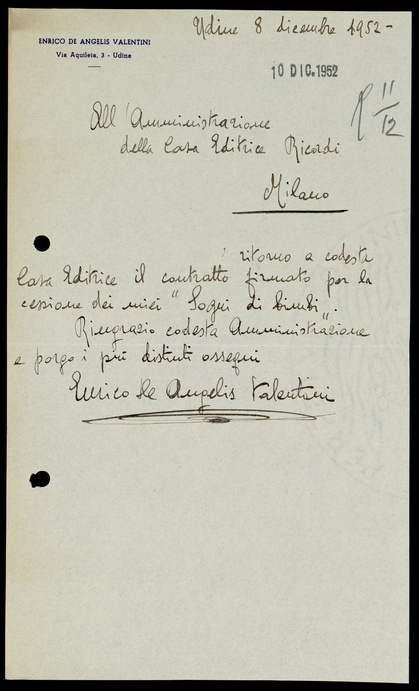 Udine 8 dicembre 1952-
ENRICO DE ANGELIS VALENTINI
Via Aquileia, 3 - Udine
10 DIC. 1952
11/12
All'Amministrazione
della Casa Editrice Ricordi
Milano
ritorno a codesta
Casa Editrice il contratto firmato per la
cessione dei miei "Sogni di bimbi".
Ringrazio codesta Amministrazione
e porgo i più distinti ossequi
Enrico de Angelis Valentini